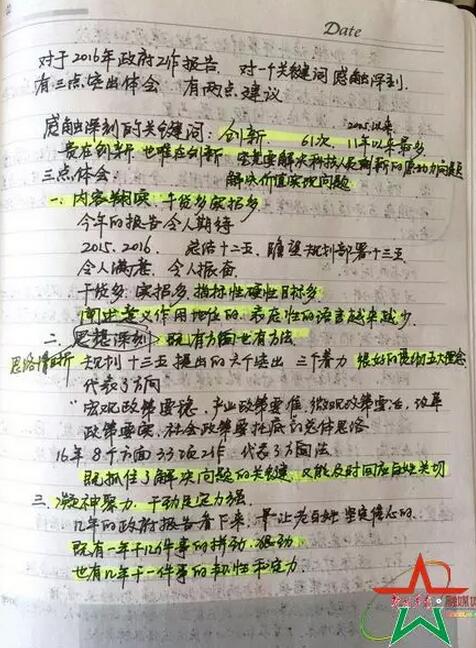 Date
对于2016年政府工作报告. 对一个关键词感触深刻.
有三点突出体会 有两点建议
感触深刻的关键词: 创新. 61次. 2005以来 11年以来最多
贵在创新. 也难在创新 实是要解决科技人员创新的原动力问题
三点体会: 解决价值实现问题
一. 内容翔实. 干货多实招多
今年的报告令人期待
2015、2016. 总结十二五, 瞻望规划部署十三五
令人满意. 令人振奋.
干货多. 实招多 指标性硬性目标多
阐述意义作用地位的. 表态性的语言越来越少.
二. 思想深刻. 既有方向也有方法.
思路清晰 规划十三五提出的六个突出 三个着力 很好的贯彻五大理念.
代表了方向
"宏观政策要稳、产业政策要准、微观政策要活、改革
政策要实、社会政策要托底的总体思路
16年8个方面33项工作. 代表了方向法
既抓住了解决问题的关键、又能及时回应百姓关切
三. 凝神聚力. 干劲足定力强
几年的政府报告看下来. 是让老百姓坚定信心的.
既有一年干几件事的拼劲.狠劲.
也有几年干一件事的韧性和定力